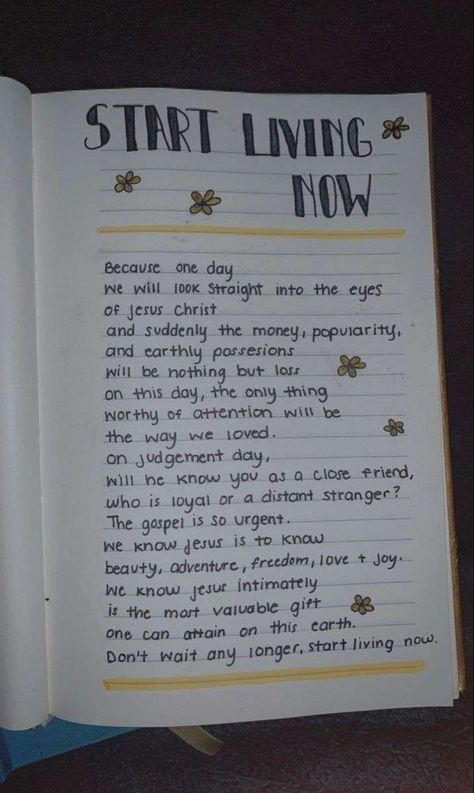 START LIVING
NOW
Because one day
we will look straight into the eyes
of Jesus Christ
and suddenly the money, popularity,
and earthly possesions
will be nothing but loss
on this day, the only thing
worthy of attention will be
the way we loved.
on judgement day,
will he know you as a close friend,
who is loyal or a distant stranger?
The gospel is so urgent.
we know Jesus is to know
beauty, adventure, freedom, love + joy.
We know Jesus intimately
is the most valuable gift
one can attain on this earth.
Don't wait any longer, start living now.